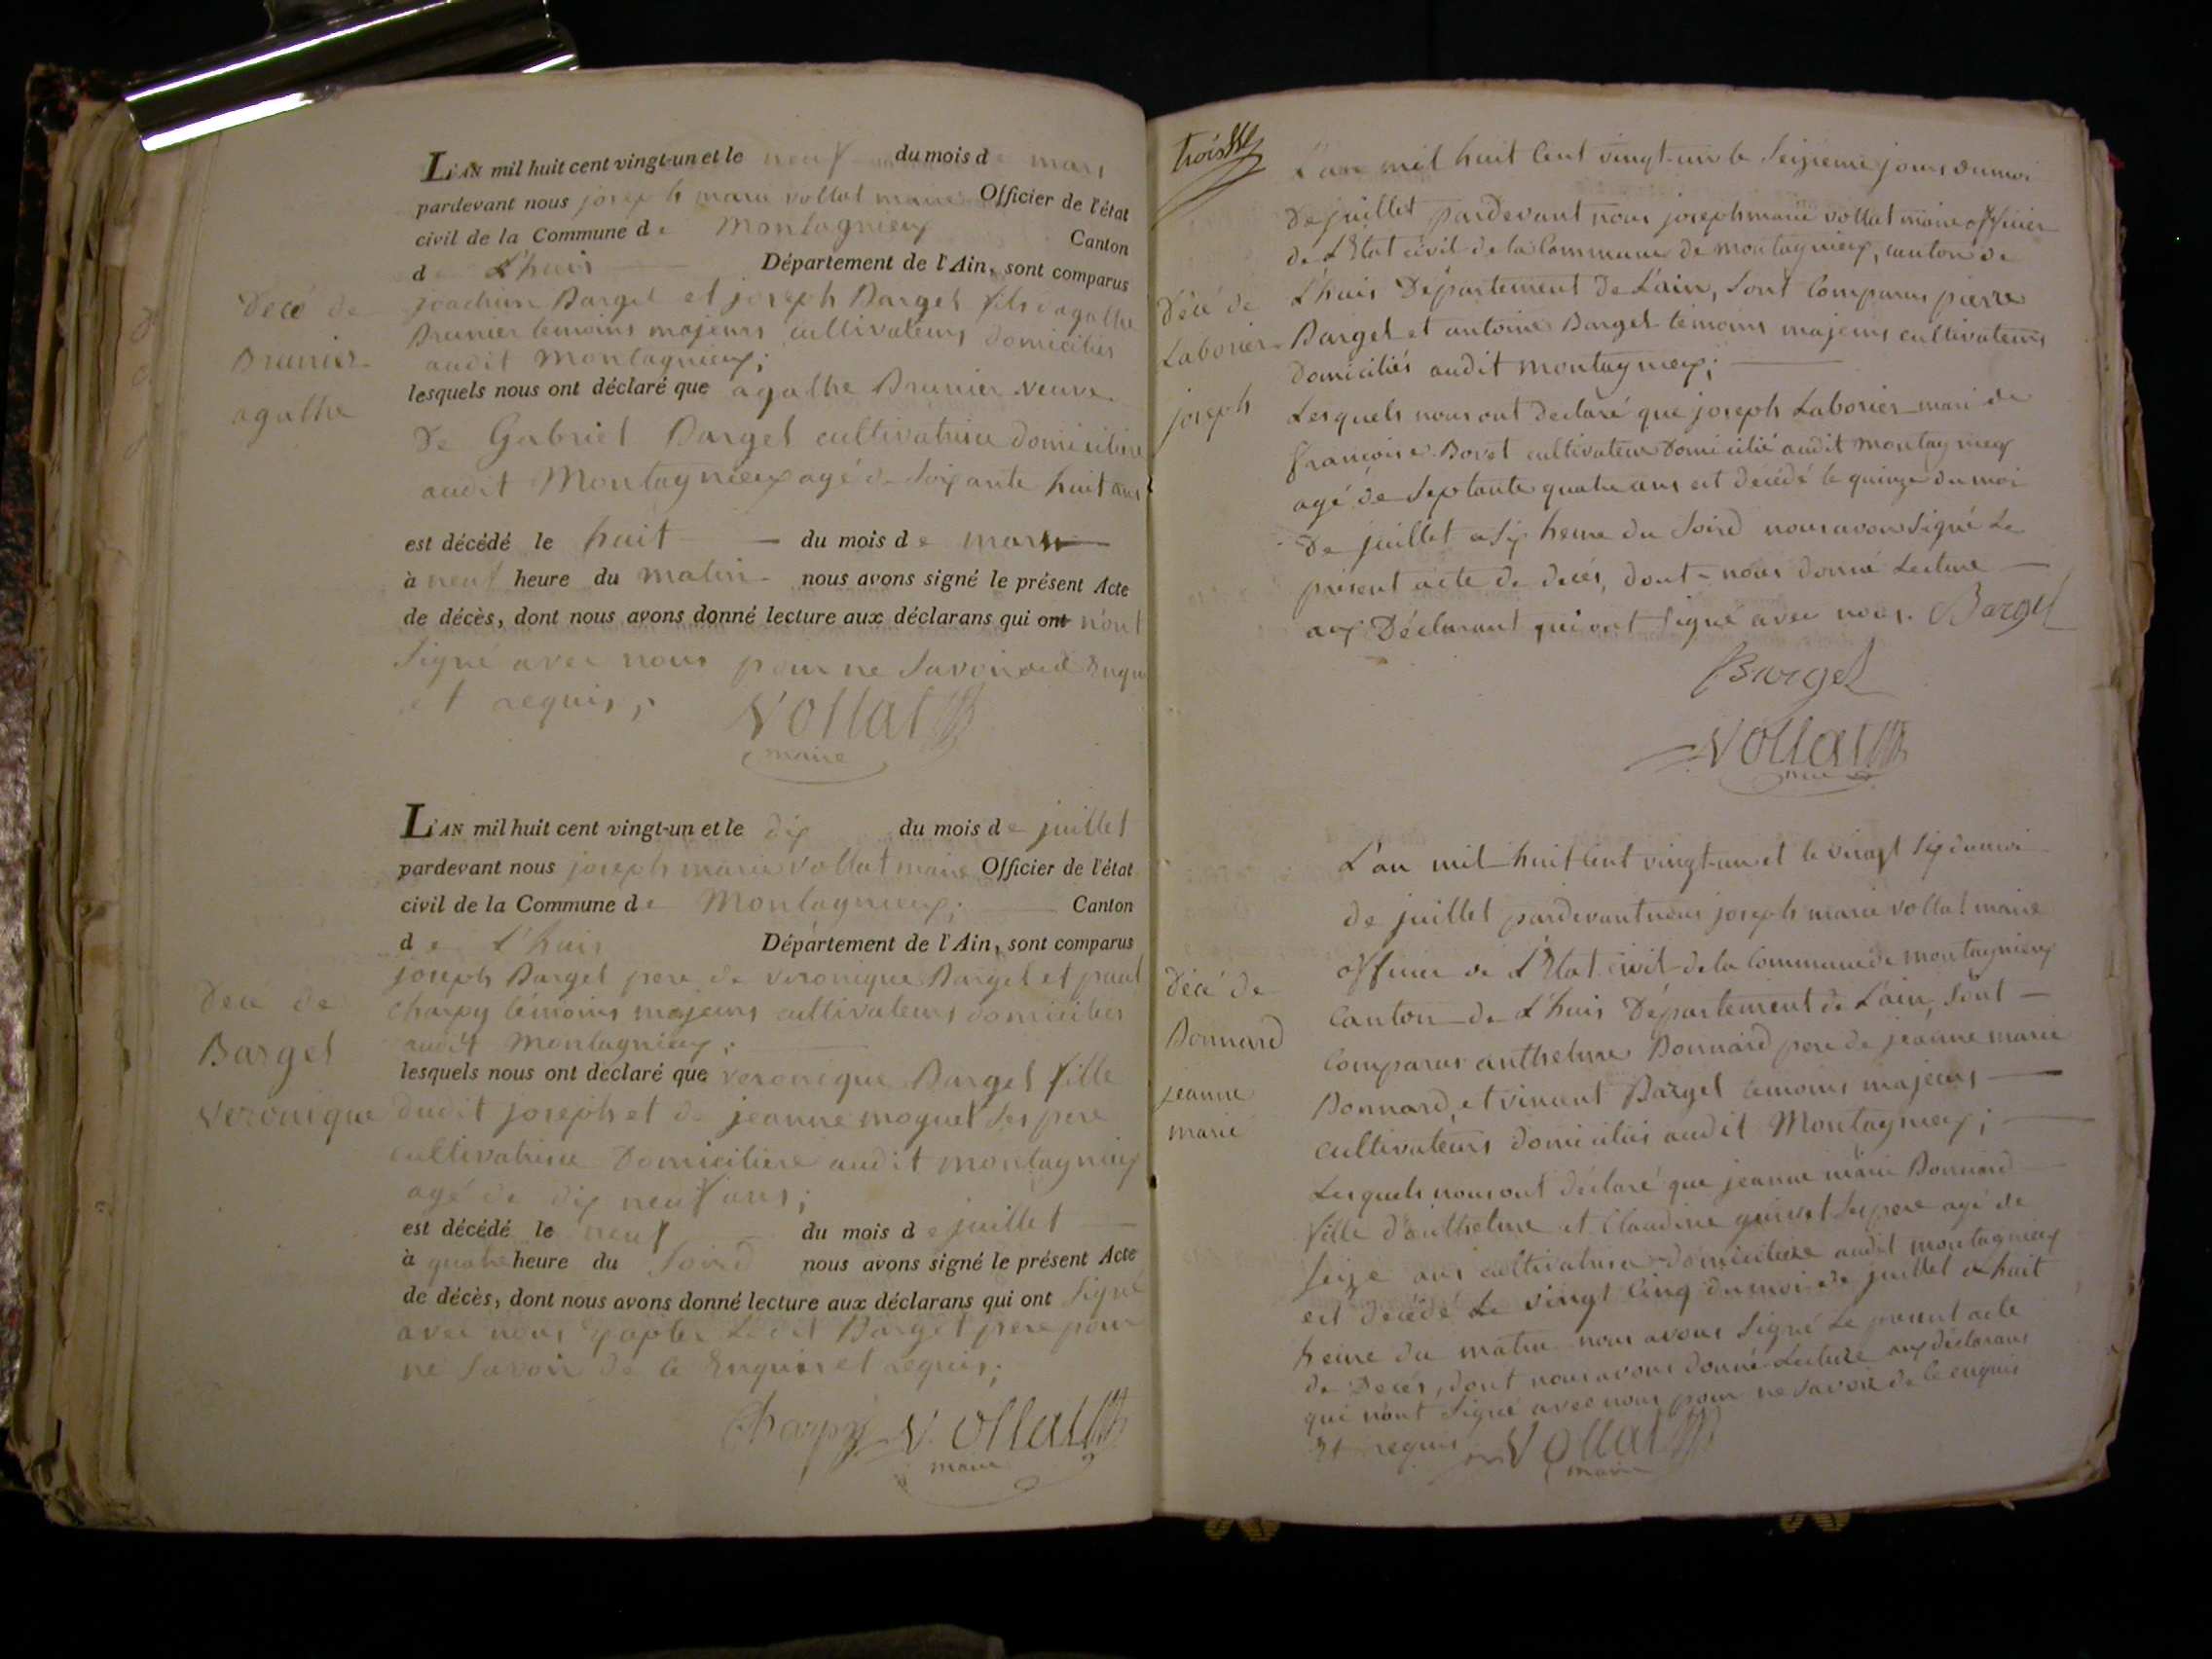 L'AN mil huit cent vingt-un et le neuf du mois de mars
pardevant nous joseph marie vollat maire Officier de l'état
civil de la Commune de Montagnieux Canton
de L'huis Département de l'Ain, sont comparus
joachim Bargel et joseph Bargel fils d'agathe
Brunier temoins majeurs cultivateurs domiciliés
audit Montagnieux;
lesquels nous ont déclaré que agathe Brunier veuve
De Gabriel Bargel cultivatrice domiciliere
audit Montagnieux agé de soixante huit ans
est décédé le huit du mois de mars
à neuf heure du matin nous avons signé le présent Acte
de décès, dont nous avons donné lecture aux déclarans qui ont n'ont
signé avec nous pour ne savoir de ce Enquis
et requis,
Vollat
maire
Décé de
Brunier
agathe
L'AN mil huit cent vingt-un et le dix du mois de juillet
pardevant nous joseph marie vollat maire Officier de l'état
civil de la Commune de Montagnieux; Canton
de L'huis Département de l'Ain, sont comparus
joseph Bargel pere de veronique Bargel et paul
Charpy témoins majeurs cultivateurs domiciliés
audit Montagnieux;
lesquels nous ont déclaré que veronique Bargel fille
dudit joseph et de jeanne moquet ses pere
cultivatrice Domiciliere audit montagnieux
agé de dix neuf ans;
est décédé le neuf du mois de juillet
à quatre heure du soird nous avons signé le présent Acte
de décès, dont nous avons donné lecture aux déclarans qui ont signé
avec nous Exapter Ledit Bargel pere pour
ne savoir de ce Enquis et requis;
Charpy Vollat
maire
Décé de
Bargel
Veronique
trois
L'an mil huit Cent vingt-un le Seizieme jours du moi
De juillet pardevant nous joseph marie vollat maire officier
de L'Etat civil de la Commune de montagnieux, canton de
L'huis Département de L'ain, sont Comparus pierre
Bargel et antoine Bargel temoins majeurs cultivateurs
Domiciliés audit montagnieux;
Lesquels nous ont declaré que joseph Laborier mari de
françoise Bovet cultivateur Domicilié audit montagnieux
agé de Septante quatre ans est décédé le quinze du moi
De juillet a six heure du Soird nous avons Signé Le
présent acte de decés, dont nous donné Lecture
aux Déclarant qui ont Signé avec nous. Bargel
Bargel
Vollat
maire
Décé de
Laborier
joseph
L'an mil huit Cent vingt-un et le vingt six du moi
de juillet pardevant nous joseph marie vollat maire
officier de L'Etat civil de la Commune de montagnieux
Canton de L'huis Département de L'ain, Sont
Comparus anthelme Bonnard pere de jeanne marie
Bonnard, et vincent Bargel temoins majeurs
cultivateurs domiciliés audit Montagnieux;
Lesquels nous ont déclaré que jeanne marie Bonnard
fille d'anthelme et Claudine ses pere agé de
Seize ans cultivatrice domiciliere audit montagnieux
est décédé Le vingt Cinq du moi de juillet a huit
heure du matin nous avons Signé Le present acte
de Decés, dont nous avons donné Lecture aux déclarans
qui n'ont Signé avec nous pour ne savoir de Ce enquis
Et requis Vollat
maire
Décé de
Bonnard
jeanne
marie